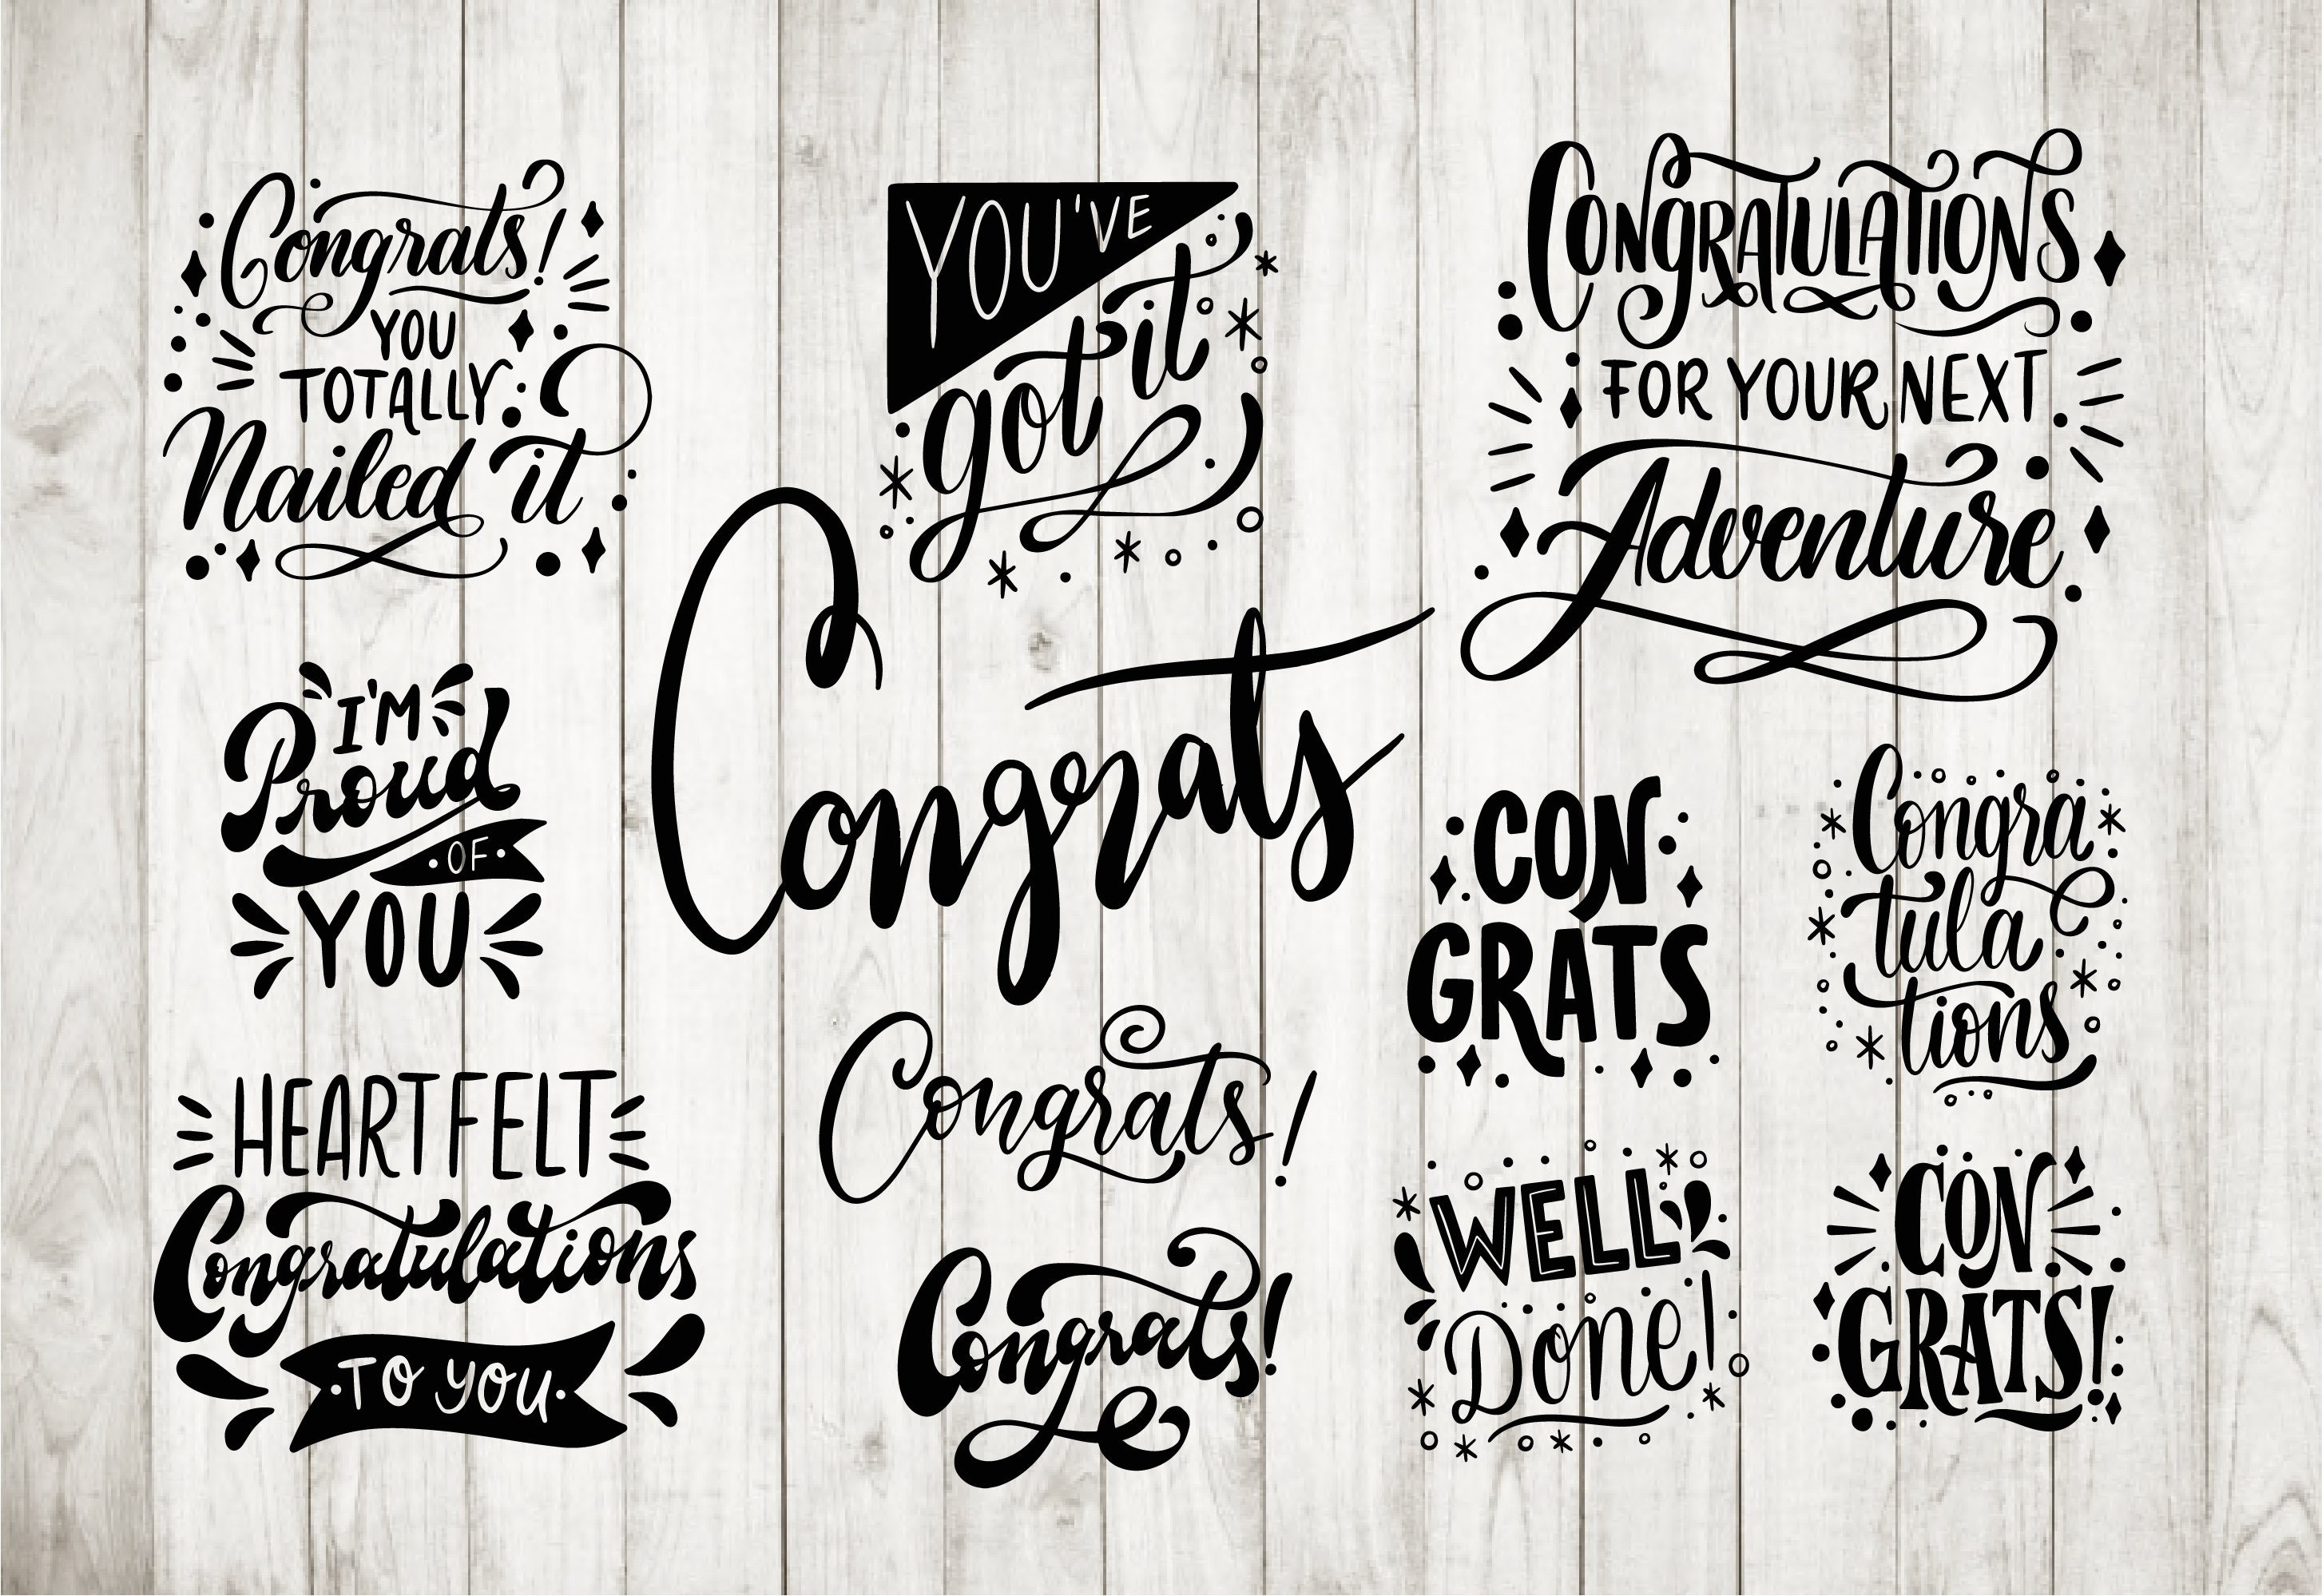 Congrats!
YOU
TOTALLY
Nailed it
I'M
Proud
OF
YOU
HEARTFELT
Congratulations
TO YOU
YOU'VE
got it
Congrats
Congrats!
Congrats!
CONGRATULATIONS
FOR YOUR NEXT
Adventure
CON
GRATS
Congra
tula
tions
WELL
Done!
CON
GRATS!